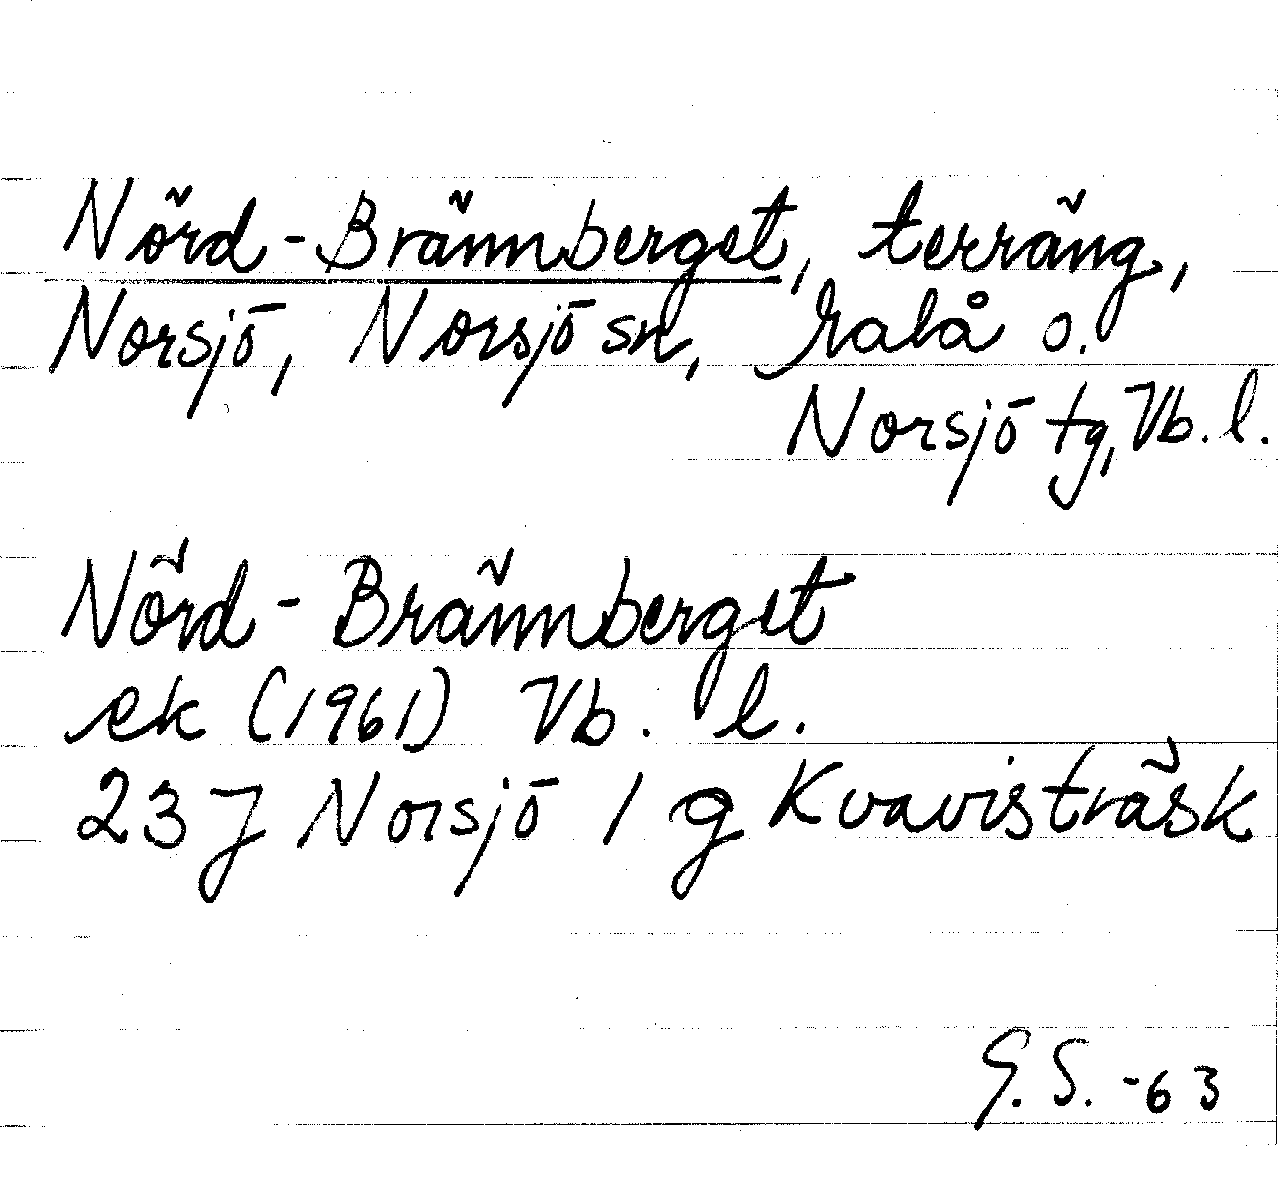 Nörd-Brännberget, terräng,
Norsjö, Norsjö sn, Malå o.
Norsjö tg, Vb. l.
Nörd-Brännberget
ek (1961) Vb. l.
23 J Norsjö 1 g Kvavisträsk
G.S. -63